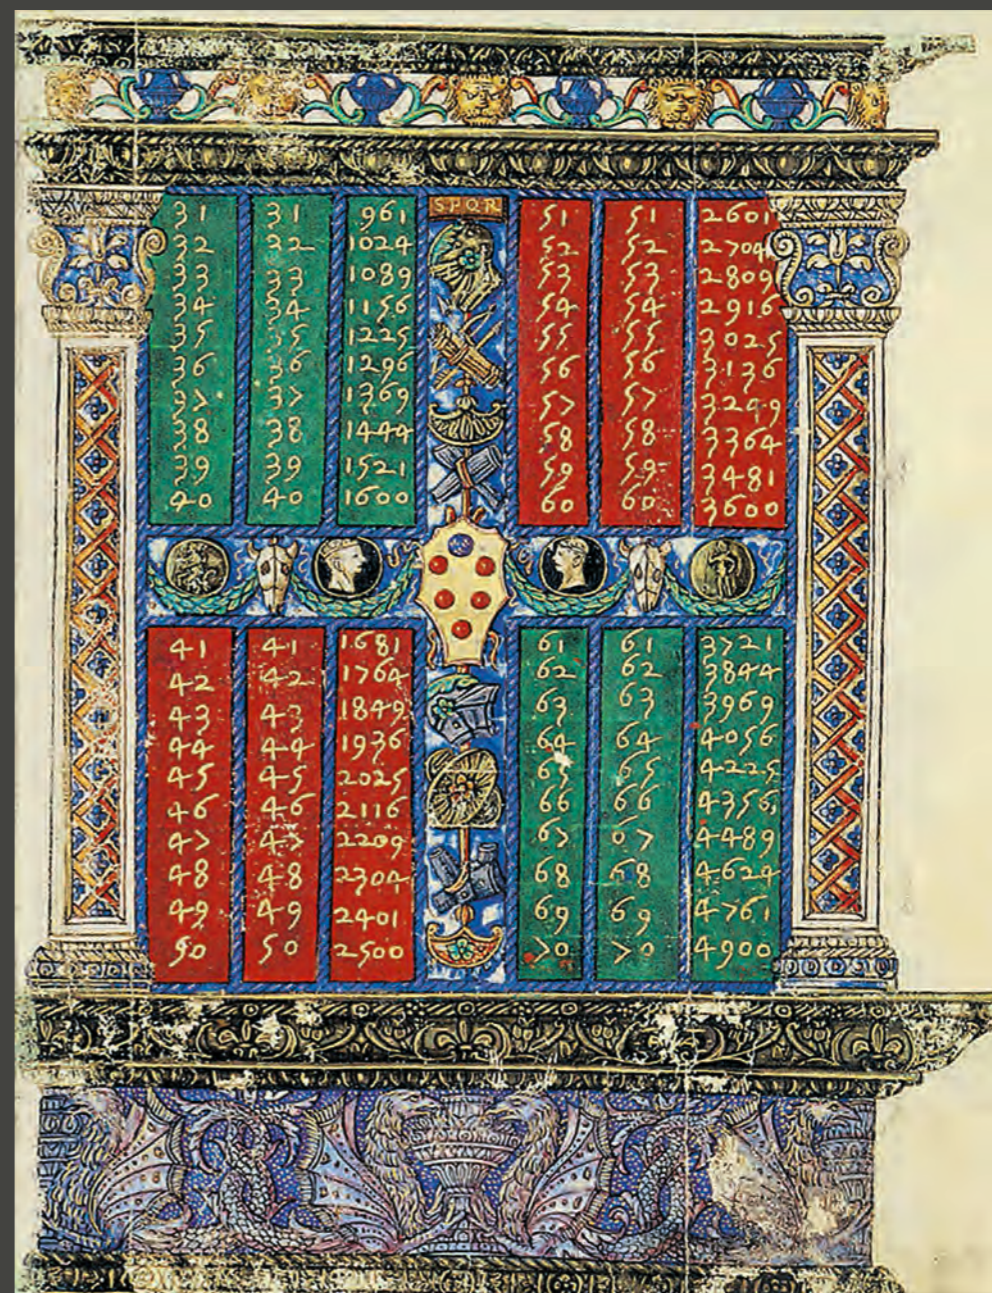 31 31 961
32 32 1024
33 33 1089
34 34 1156
35 35 1225
36 36 1296
37 37 1369
38 38 1444
39 39 1521
40 40 1600
SPQR
51 51 2601
52 52 2704
53 53 2809
54 54 2916
55 55 3025
56 56 3136
57 57 3249
58 58 3364
59 59 3481
60 60 3600
41 41 1681
42 42 1764
43 43 1849
44 44 1936
45 45 2025
46 46 2116
47 47 2209
48 48 2304
49 49 2401
50 50 2500
61 61 3721
62 62 3844
63 63 3969
64 64 4056
65 65 4225
66 66 4356
67 67 4489
68 68 4624
69 69 4761
70 70 4900